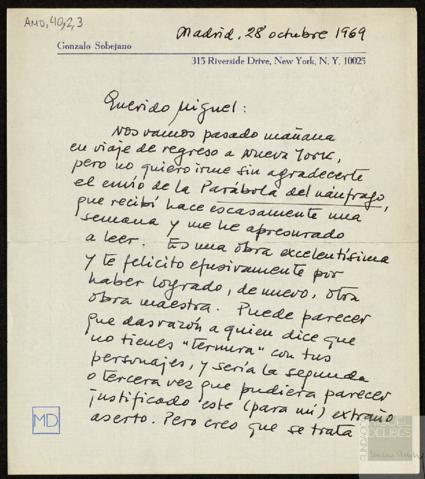 AMD,40,2,3
Madrid, 28 octubre 1969
Gonzalo Sobejano
315 Riverside Drive, New York, N. Y. 10025
Querido Miguel:
Nos vamos pasado mañana
en viaje de regreso a Nueva York,
pero no quiero irme sin agradecerte
el envío de la Parábola del náufrago,
que recibí hace escasamente una
semana y me he apresurado
a leer. Es una obra excelentísima
y te felicito efusivamente por
haber logrado, de nuevo, otra
obra maestra. Puede parecer
que das razón a quien dice que
no tienes "ternura" con tus
personajes, y sería la segunda
o tercera vez que pudiera parecer
justificado este (para mí) extraño
aserto. Pero creo que se trata
MD
FUNDACIÓN
MIGUEL
DELIBES